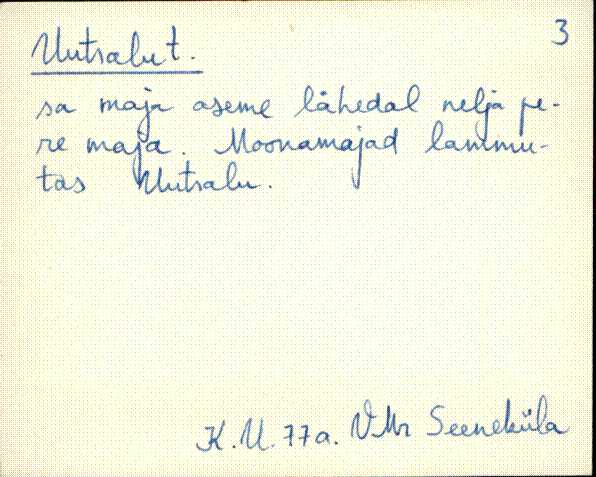 3
Uutsalu t.
sa maja aseme lähedal nelja pe-
re maja. Moonamajad lammu-
tas Uutsalu.
K.U. 77a. VMr Seeneküla